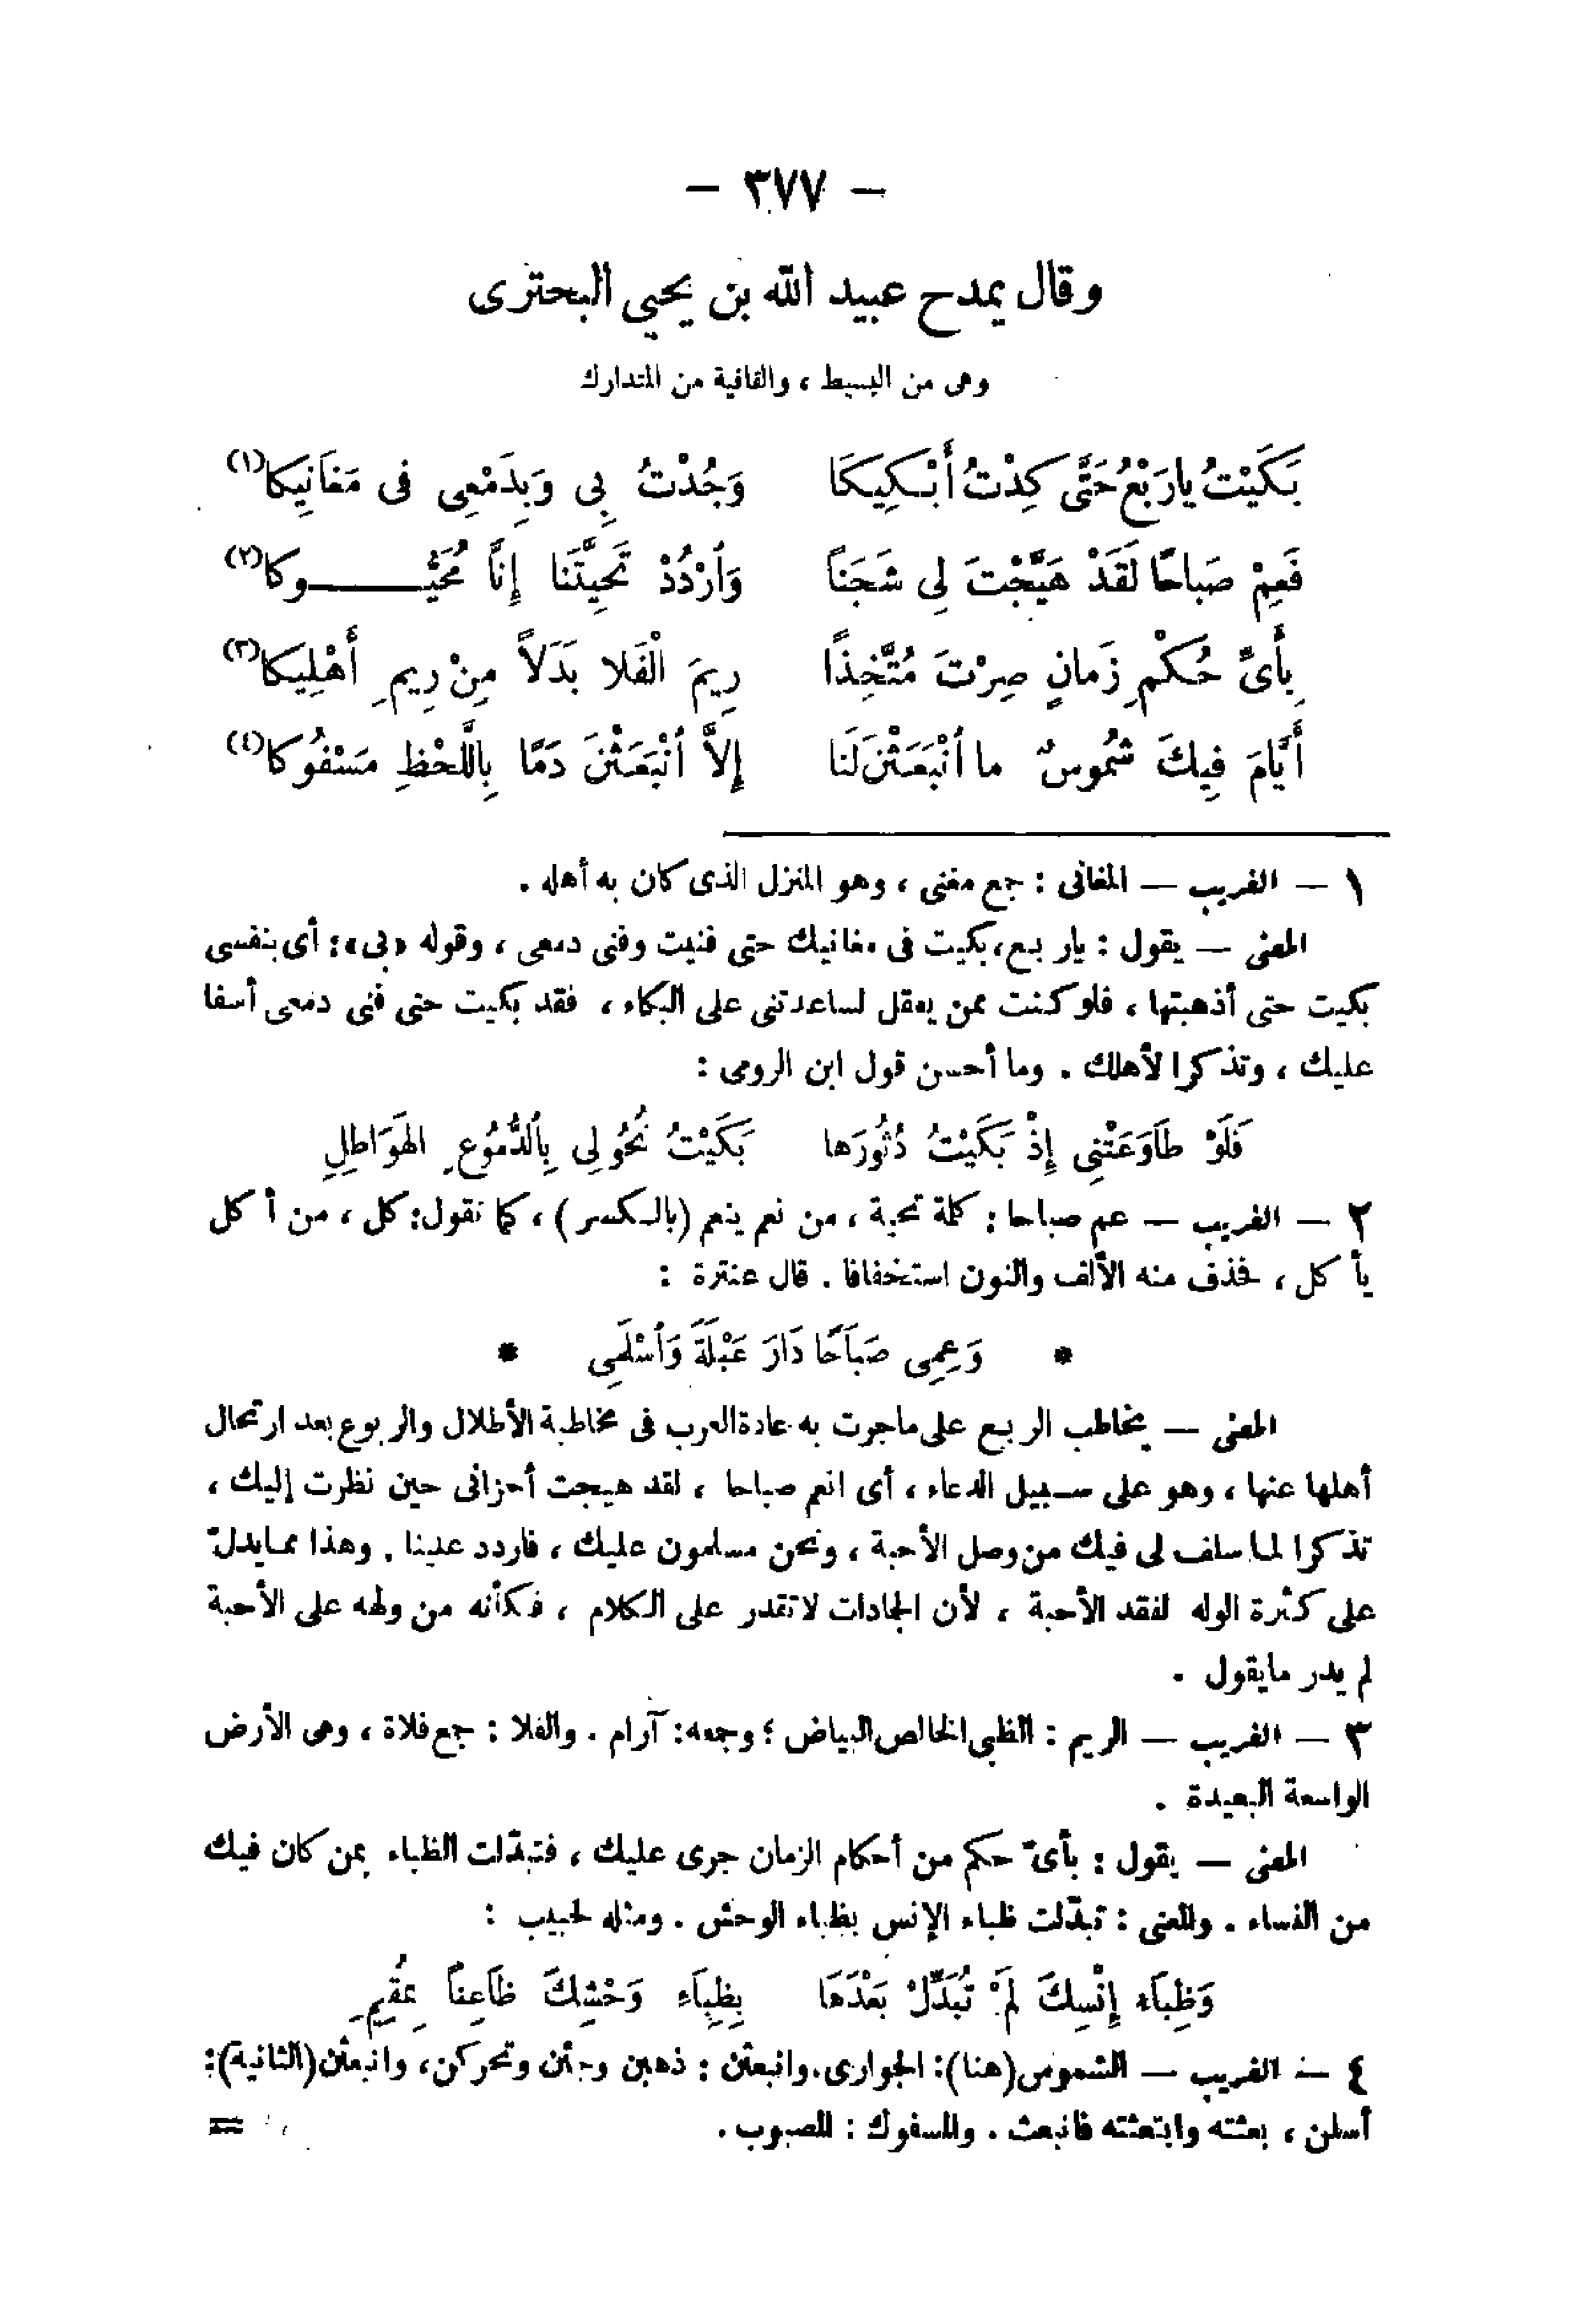 — ٣٧٧ —
وقال يمدح عبيد الله بن يحيي البحترى
وهى من البسيط ، والقافية من المتدارك
بَكَيْتُ يارَبْعُ حَتَّى كِدْتُ أُبْكِيكَا وَجُدْتُ بِي وَبِدَمْعِى فى مَغَانِيكا(١)
فَعِمْ صَبَاحًا لَقَدْ هَيَّجْتَ لِى شَجَنًا وَٱرْدُدْ تَحِيَّتَنَا إِنَّا مُحَيُّـــــوكا(٢)
بِأىِّ حُكْمِ زَمانٍ صِرْتَ مُتَّخِذًا رِيمَ الْفَلا بَدَلاً مِنْ رِيمِ أَهْلِيكا(٣)
أَيَّامَ فِيكَ شُمُوسٌ ما ٱنْبَعَثْنَ لَنَا إِلاَّ ٱنْبَعَثْنَ دَمًا بِاللَّحْظِ مَسْفُوكا(٤)
١ — الغريب — المغانى : جمع مغنى ، وهو المنزل الذى كان به أهله .
المعنى — يقول : ياربع، بكيت فى مغانيك حتى فنيت وفنى دمعى ، وقوله «بى»: أى بنفسى
بكيت حتى أذهبتها ، فلو كنت ممن يعقل لساعدتنى على البكاء ، فقد بكيت حتى فنى دمعى أسفا
عليك ، وتذكرا لأهلك . وما أحسن قول ابن الرومى :
فَلَوْ طَاوَعَتْنِى إِذْ بَكَيْتُ دُثُورَها بَكَيْتُ نُحُولِى بِٱلدُّمُوعِ الهَوَاطِلِ
٢ — الغريب — عم صباحا : كلمة تحية ، من نعم ينعم (بالكسر) ، كما نقول: كل ، من أكل
يأكل ، فحذف منه الألف والنون استخفافا . قال عنترة :
* وَعِمِى صَبَاحًا دَارَ عَبْلَةَ وَٱسْلَمِى *
المعنى — يخاطب الربع على ماجرت به عادة العرب فى مخاطبة الأطلال والربوع بعد ارتحال
أهلها عنها ، وهو على سبيل الدعاء ، أى انعم صباحا ، لقد هيجت أحزانى حين نظرت إليك ،
تذكرا لما سلف لى فيك من وصل الأحبة ، ونحن مسلمون عليك ، فاردد علينا . وهذا مما يدلّ
على كثرة الوله لفقد الأحبة ، لأن الجادات لاتقدر على الكلام ، فكأنه من ولهه على الأحبة
لم يدر مايقول .
٣ — الغريب — الريم : الظبى الخالص البياض ؛ وجمعه: آرام . والفلا : جمع فلاة ، وهى الأرض
الواسعة البعيدة .
المعنى — يقول : بأىّ حكم من أحكام الزمان جرى عليك ، فتبدّلت الظباء بمن كان فيك
من النساء . والمعنى : تبدّلت ظباء الإنس بظباء الوحش . ومثله لحبيب :
وَظِبَاء إِنْسِكَ لَمْ تُبَدَّلْ بَعْدَهَا بِظِبِاَءِ وَحْشِكَ ظَاعِنًا بِمُقِيمِ
٤ — الغريب — الشموس (هنا): الجوارى. وانبعثن : ذهبن وجئن وتحركن، وانبعثن (الثانية):
أسلن ، بعثته وابتعثته فانبعث . والمسفوك : المصبوب . =